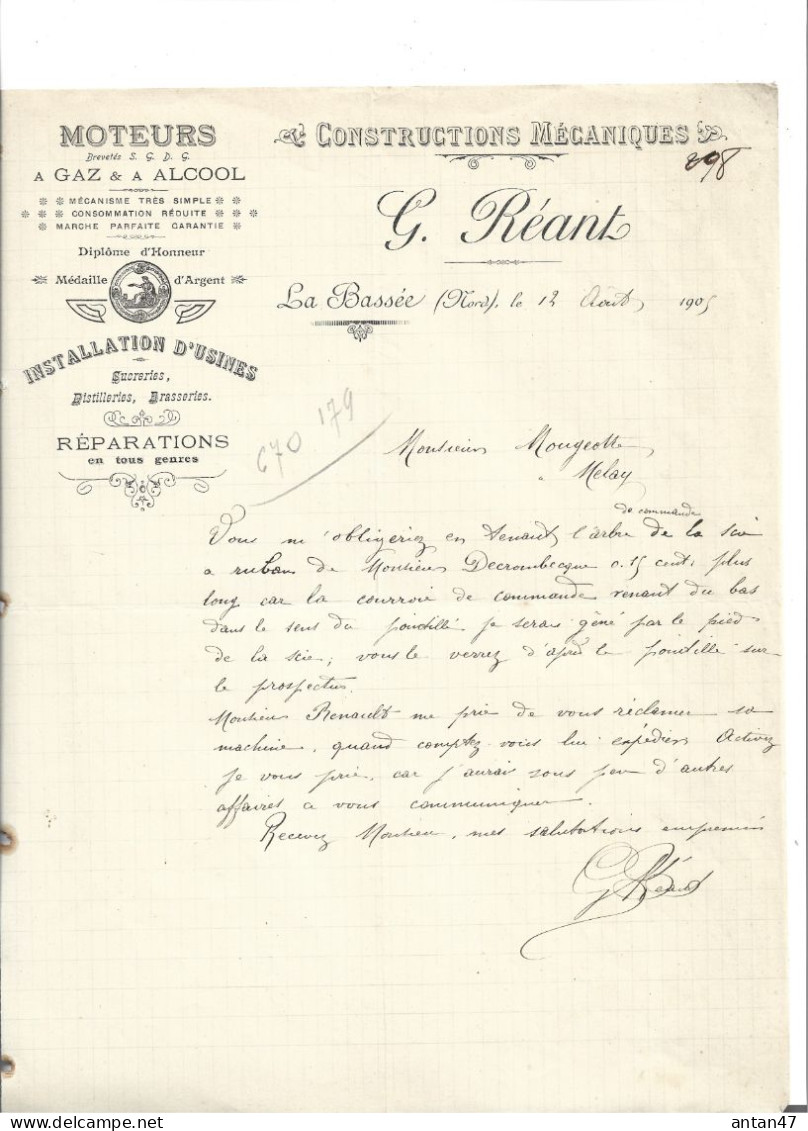 MOTEURS
Brevetés S. G. D. G.
A GAZ & A ALCOOL
MÉCANISME TRÈS SIMPLE
CONSOMMATION RÉDUITE
MARCHE PARFAITE GARANTIE
Diplôme d'Honneur
Médaille d'Argent
INSTALLATION D'USINES
Sucreries,
Distilleries, Brasseries.
RÉPARATIONS
en tous genres
CONSTRUCTIONS MÉCANIQUES
898
G. Réant
La Bassée (Nord), le 12 Août 1905
670 179
Monsieur Mougeotte
a Melay
de commande
Vous m'obligeriez en tenant l'arbre de la scie
a ruban de Monsieur Decrombecque 0.15 cent. plus
long car la courroie de commande venant du bas
dans le sens du pointillé je serais gêné par le pied
de la scie; vous le verrez d'après le pointillé sur
le prospectus.
Monsieur Renault me prie de vous réclamer sa
machine, quand comptez-vous lui expédier Activez
je vous prie, car j'aurais sous peu d'autres
affaires a vous communiquer.
Recevez Monsieur, mes salutations empressées
G Réant
antan47